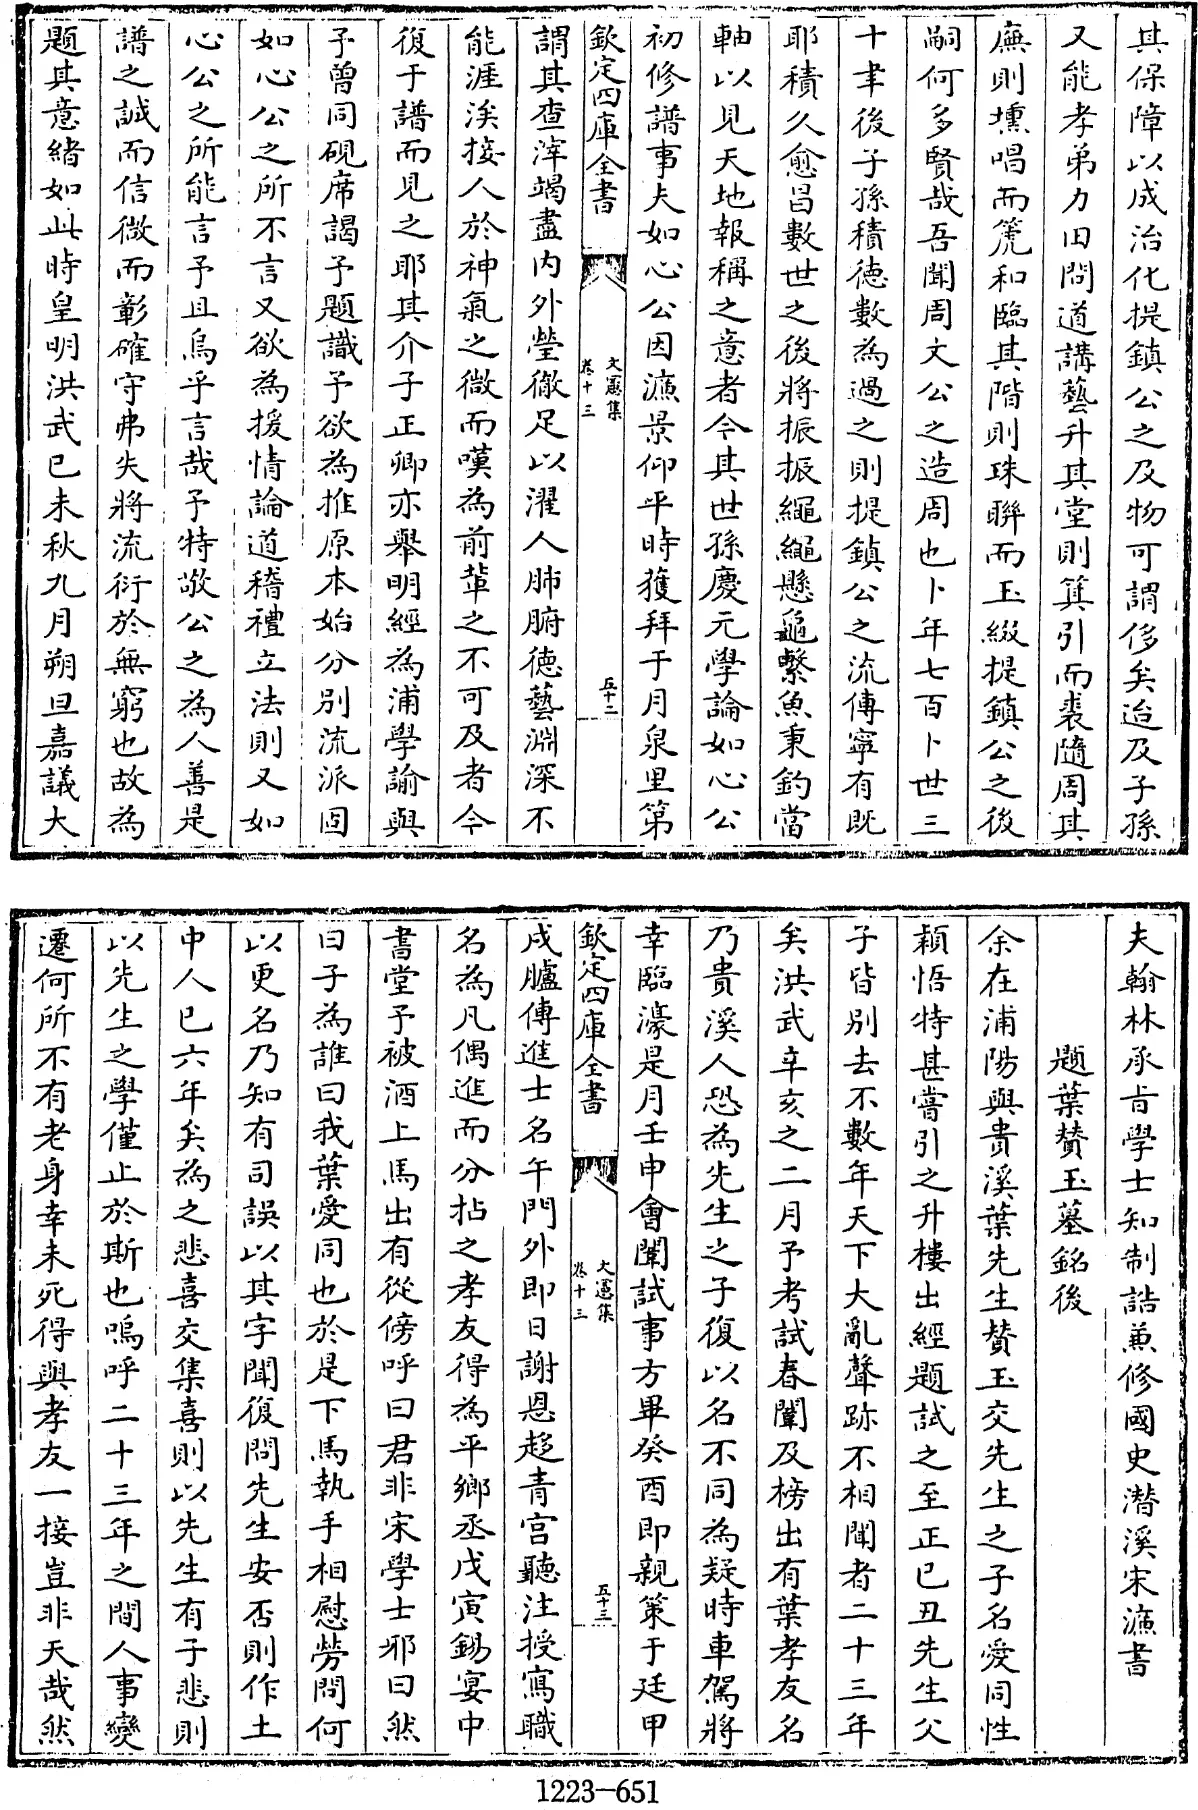 其保障以成治化提鎮公之及物可謂侈矣迨及子孫
又能孝弟力田問道講藝升其堂則箕引而裘隨周其
廡則壎唱而箎和臨其階則珠聨而玉綴提鎮公之後
嗣何多賢哉吾聞周文公之造周也卜年七百卜世三
十聿後子孫積德數為過之則提鎮公之流傳寧有既
耶積久愈昌數世之後將振振繩繩懸龜繫魚秉鈞當
軸以見天地報稱之意者今其世孫慶元學論如心公
初修譜事夫如心公因濂景仰平時獲拜于月泉里第
欽定四庫全書
文憲集
卷十三
五十二
謂其查滓竭盡内外瑩徹足以濯人肺腑德藝淵深不
能涯涘接人於神氣之微而嘆為前輩之不可及者今
復于譜而見之耶其介子正卿亦舉明經為浦學諭與
予曽同硯席謁予題識予欲為推原本始分别流派固
如心公之所不言又欲為援情論道稽禮立法則又如
心公之所能言予且烏乎言哉予特敬公之為人善是
譜之誠而信微而彰確守弗失將流衍於無窮也故為
題其意緒如此時皇明洪武已未秋九月朔旦嘉議大
夫翰林承㫖學士知制誥兼修國史潛溪宋濂書
題葉賛玉墓銘後
余在浦陽與貴溪葉先生賛玉交先生之子名愛同性
穎悟特甚嘗引之升樓出經題試之至正已丑先生父
子皆别去不數年天下大亂聲跡不相聞者二十三年
矣洪武辛亥之二月予考試春闈及榜出有葉孝友名
乃貴溪人恐為先生之子復以名不同為疑時車駕將
幸臨濠是月壬申會闈試事方畢癸酉即親策于廷甲
欽定四庫全書
文憲集
卷十三
五十三
戌臚傳進士名午門外即日謝恩趍青宮聽注授寫職
名為凡偶進而分拈之孝友得為平鄉丞戊寅錫宴中
書堂予被酒上馬出有從傍呼曰君非宋學士邪曰然
曰子為誰曰我葉愛同也於是下馬執手相慰勞問何
以更名乃知有司誤以其字聞復問先生安否則作土
中人已六年矣為之悲喜交集喜則以先生有子悲則
以先生之學僅止於斯也嗚呼二十三年之間人事變
遷何所不有老身幸未死得與孝友一接豈非天哉然
1223—651